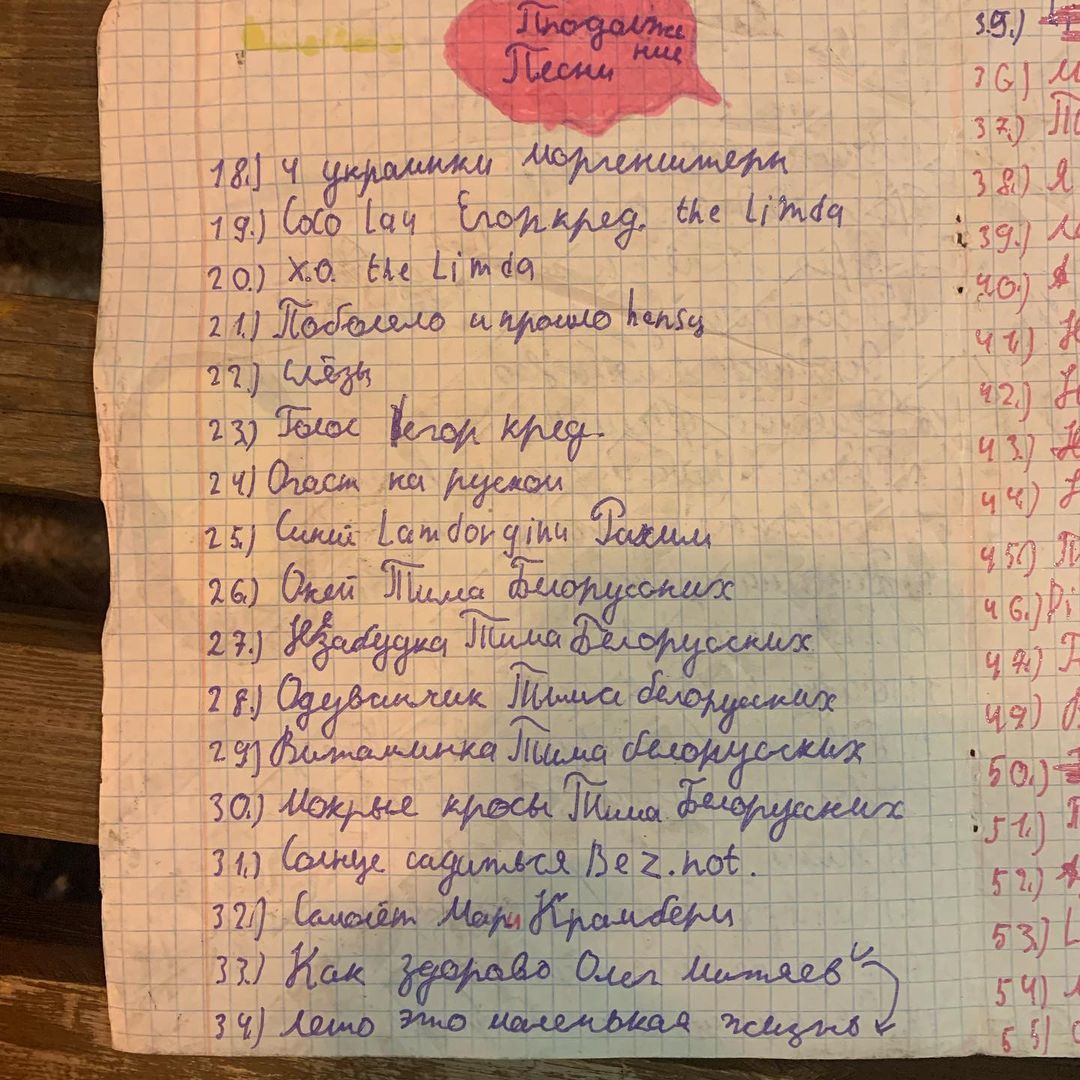 Продолже
ние
Песни
18.) 4 украинки моргенштерн
19.) Coco Lау Егор кред. the Limda
20.) X.O. the Limda
21.) Поболело и прошло hensy
22.) Слёзы
23.) Голос егор кред.
24.) Опаст на руском
25.) Синий Lamborginu Рахим
26.) Окей Тима Белорусских
27.) Незабудка Тима Белорусских
28.) Одуванчик Тима белоруских
29) Витаминка Тима белорусских
30.) Мокрые кросы Тима Белорусских
31.) Солнце садиться Bez.not.
32.) Самолёт Мари Крамбери
33.) Как здорово Олег митяев
34.) лето это маленькая жизнь
39.)
36)
37.)
38.) Я
39.)
40.)
41.)
42.)
43.)
44.)
45.)
46.)
47.)
49)
50.)
51.)
52.)
53.)
54)
55)